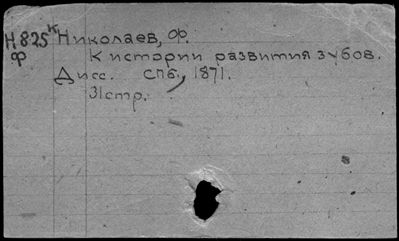 Н825к Николаев, Ф.
Ф К истории развития зубов.
Дисс. СПб., 1871.
31 стр.